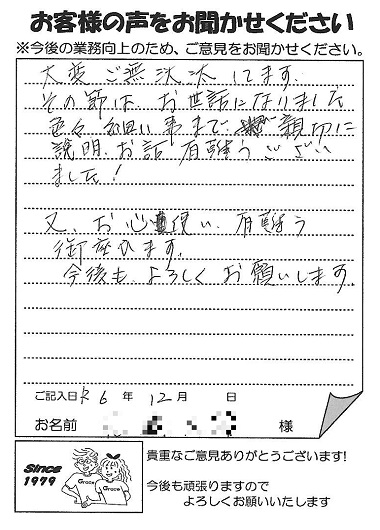 お客様の声をお聞かせください
※今後の業務向上のため、ご意見をお聞かせください。
大変ご無沙汰してます。
その節は お世話になりました
色々 細い事まで 親切に
説明、お話 有難うござい
ました!
又、お心遣い、有難う
御座います。
今後も、よろしくお願いします。
ご記入日 R6年 12月 日
お名前 様
Since
1979
Grace Grace
貴重なご意見ありがとうございます!
今後も頑張りますので
よろしくお願いいたします